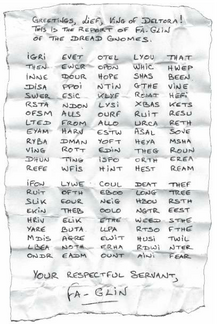 GREETINGS, LIEF, KING OF DELTORA!
THIS IS THE REPORT OF FA-GLIN
OF THE DREAD GNOMES.
IGRI EVET OTEL LYOU THAT
THEN EWCR OPON WHIC HWEP
INNE DOUR HOPE SHAS BEEN
DISA PPOI NTIN GTHE VINE
SWER ESIC
RSTA NDON LYSI XBAS KETS
OFSM ALLS OURF RUIT RESU
LTED FROM ALLO URCA RETH
EYAM HARV ESTW ASAL SOVE
RYBA DMAN YOFT HEYA MSHA
VING ROTT EDIN THEG ROUN
DHUN TING ISPO ORTH EREA
REFE WFIS HINT HEST REAM
IFON LYWE COUL DEAT THEF
RUIT OFTH EBOO LONG TREE
SLIK EOUR NEIG HBOU RSTH
EKIN THEB OOLO NGTR EEST
HRIV ELIK ETHE WEED STHE
YARE BUTA LLPA RTSO FTHE
MDIS AGRE EWIT HUSI TWIL
LBEA NOTH ERHA RDWI NTER
ONDR EADM OUNT AINI FEAR
YOUR RESPECTFUL SERVANT,
FA-GLIN